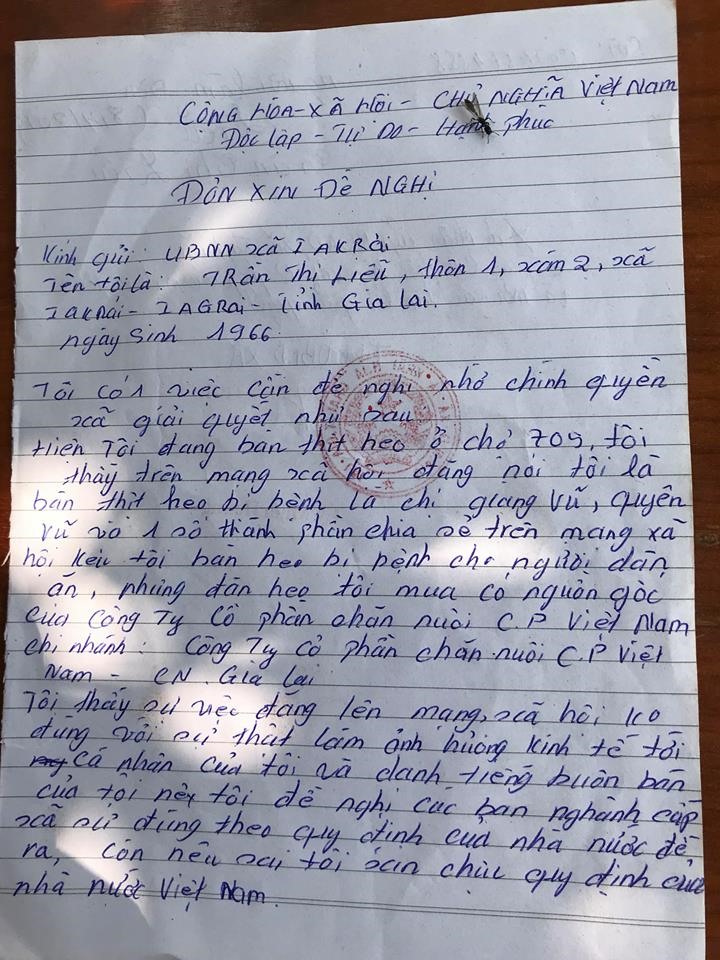 CỘNG HÒA - XÃ HỘI - CHỦ NGHĨA Việt Nam
Độc lập - Tự Do - Hạnh phúc
ĐƠN XIN ĐỀ NGHỊ
Kính gửi: UBNN xã IAKRái
Tên tôi là: TRần Thị Liễu, thôn 1, xóm 2, xã
IaKRái - IAGRai - Tỉnh Gia lai.
ngày sinh 1966
Tôi có 1 việc cần đề nghị nhờ chính quyền
xã giải quyết như sau
Hiện Tôi đang bán thịt heo ở chợ 705, tôi
thấy trên mạng xã hội đăng nói tôi là
bán thịt heo bị bệnh là chị giang Vũ, quyên
vũ và 1 số thành phần chia sẻ trên mạng xã
hội kêu tôi bán heo bị bệnh cho người dân
ăn, nhưng đàn heo tôi mua có nguồn gốc
của Công Ty Cổ phần chăn nuôi C.P Việt Nam
chi nhánh: Công Ty cổ phần chăn nuôi C.P Việt
Nam - CN. Gia Lai
Tôi thấy sự việc đăng lên mạng xã hội ko
đúng với sự thật làm ảnh hưởng kinh tế tới
cá nhân của tôi và danh tiếng buôn bán
của tôi nên tôi đề nghị các ban nghành cấp
xã xử đúng theo quy định của nhà nước đề
ra, còn nếu sai tôi xin chịu quy định của
nhà nước Việt Nam.